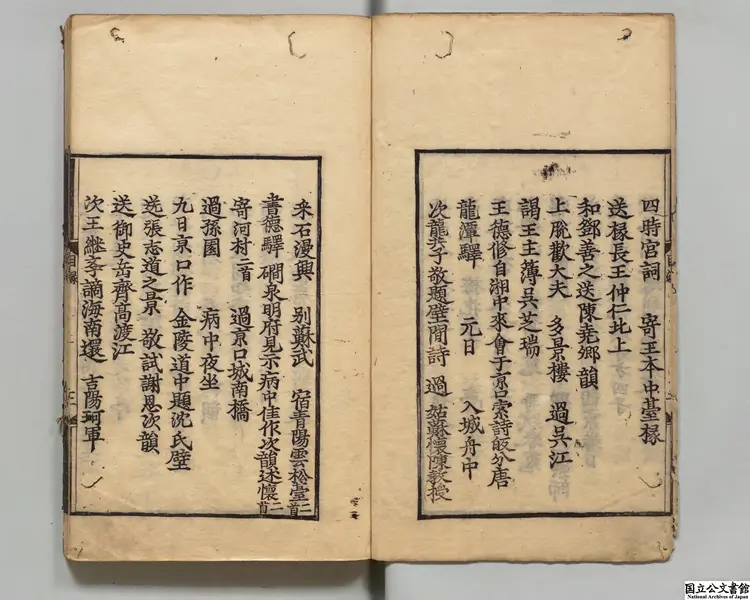 四時宮詞　寄王本中臺掾
送掾長王仲仁北上
和鄧善之送陳堯卿韻
上脫歡大夫　多景樓　過吳江
謁王主簿吳芝瑞
王德修自湘中來會于京口索詩皈分唐
龍潭驛　元日　入城舟中
次龍洪子敬題壁間詩　過姑蘇懷陳教授
采石漫興　別蘇武　宿青陽雲松堂二首
書德驛　礀泉明府見示病中佳作次韻述懷二首
寄河村二首　過京口城南橋
過孫園　病中夜坐
九日京口作　金陵道中題沈氏壁
送張志道之景　敬試謝恩次韻
送御史岳齊高渡江
次王繼學謫海南還　吉陽珂軍
国立公文書館
National Archives of Japan